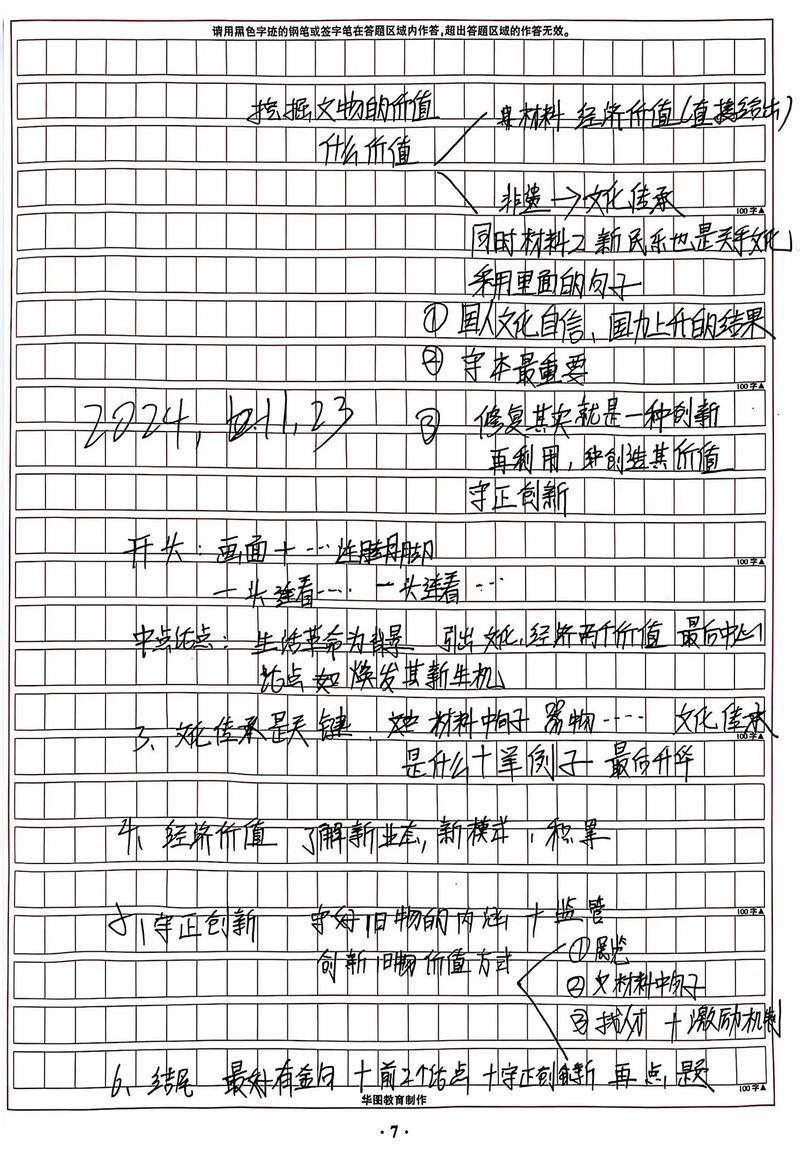 请用黑色字迹的钢笔或签字笔在答题区域内作答,超出答题区域的作答无效。
挖掘文物的价值
材料 经济价值(直接给出)
什么价值
非遗→文化传承
100字▲
同时材料2新民乐也是关乎文化
采用里面的句子
① 国人文化自信、国力上升的结果
② 守本最重要
100字▲
2024, 11, 23
③ 修复其实就是一种创新
再利用, 创造其价值
守正创新
100字▲
开头: 画面十…
一头连着… 一头连着…
论点: 生活革命为背景 引出文化, 经济两个价值 最后中心
论点如焕发其新生机
100字▲
3、文化传承是关键、 材料中句子 器物…… 文化传承
是什么十举例子 最后升华
4、经济价值 了解新业态, 新模式, 积累
100字▲
5、守正创新 守好旧物的内涵十监管
创新旧物价值方式
① 展览
② 材料中句子
③ 找人才十激励机制
6、结尾 最好有金句十前2个论点十守正创新 再点题
100字▲
华图教育制作
·7·